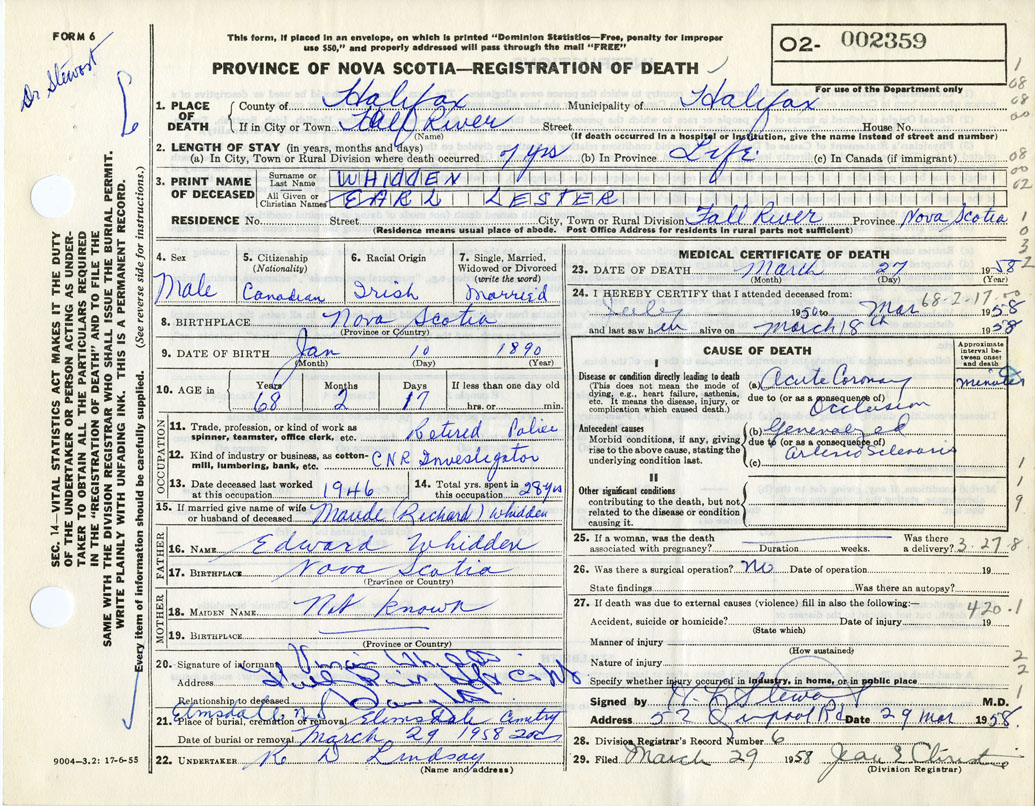 FORM 6
Dr Stewart
This form, if placed in an envelope, on which is printed "Dominion Statistics—Free, penalty for improper
use $50," and properly addressed will pass through the mail "FREE"
O2- 002359
For use of the Department only
PROVINCE OF NOVA SCOTIA—REGISTRATION OF DEATH
1. PLACE OF DEATH County of Halifax Municipality of Halifax
If in City or Town Fall River Street House No.
(Name) (If death occurred in a hospital or institution, give the name instead of street and number)
2. LENGTH OF STAY (in years, months and days)
(a) In City, Town or Rural Division where death occurred 7 yrs (b) In Province Life (c) In Canada (if immigrant)
3. PRINT NAME OF DECEASED Surname or Last Name WHIDDEN
All Given or Christian Names EARL LESTER
RESIDENCE No. Street City, Town or Rural Division Fall River Province Nova Scotia
(Residence means usual place of abode. Post Office Address for residents in rural parts not sufficient)
4. Sex Male
5. Citizenship (Nationality) Canadian
6. Racial Origin Irish
7. Single, Married, Widowed or Divorced (write the word) Married
8. BIRTHPLACE Nova Scotia
(Province or Country)
9. DATE OF BIRTH Jan 10 1890
(Month) (Day) (Year)
10. AGE in Years 68 Months 2 Days 17 If less than one day old
hrs. or min.
OCCUPATION
11. Trade, profession, or kind of work as spinner, teamster, office clerk, etc. Retired Police
12. Kind of industry or business, as cotton-mill, lumbering, bank, etc. CNR Investigator
13. Date deceased last worked at this occupation 1946
14. Total yrs. spent in this occupation 28 yrs
15. If married give name of wife or husband of deceased Maude (Richard) Whidden
FATHER
16. NAME Edward Whidden
17. BIRTHPLACE Nova Scotia
(Province or Country)
MOTHER
18. MAIDEN NAME Not known
19. BIRTHPLACE
(Province or Country)
20. Signature of informant
Address
Relationship to deceased
Elmsdale N S
21. Place of burial, cremation or removal Elmsdale
Date of burial or removal March 29 1958
22. UNDERTAKER K D Lindsay
(Name and address)
MEDICAL CERTIFICATE OF DEATH
23. DATE OF DEATH March 27 1958
(Month) (Day) (Year)
24. I HEREBY CERTIFY that I attended deceased from:
July 1950 to Mar 1958
68-2-17
and last saw him alive on March 18th 1958
CAUSE OF DEATH
Approximate interval between onset and death
I
Disease or condition directly leading to death
(This does not mean the mode of dying, e.g., heart failure, asthenia, etc. It means the disease, injury, or complication which caused death.)
(a) Acute Coronary minutes
due to (or as a consequence of)
Occlusion
Antecedent causes
Morbid conditions, if any, giving rise to the above cause, stating the underlying condition last.
(b) Generalized
due to (or as a consequence of)
(c)
II
Other significant conditions
contributing to the death, but not related to the disease or condition causing it.
25. If a woman, was the death associated with pregnancy? Duration weeks. Was there a delivery?
3-27-8
26. Was there a surgical operation? No Date of operation 19
State findings Was there an autopsy?
27. If death was due to external causes (violence) fill in also the following:—
420.1
Accident, suicide or homicide? Date of injury 19
(State which)
Manner of injury
(How sustained)
Nature of injury
Specify whether injury occurred in industry, in home, or in public place
Signed by H L Stewart M.D.
Address 52 Quinpool Rd Date 29 Mar 1958
28. Division Registrar's Record Number 6
29. Filed March 29 1958
(Division Registrar)
SEC. 14—VITAL STATISTICS ACT MAKES IT THE DUTY
OF THE UNDERTAKER OR PERSON ACTING AS UNDER-
TAKER TO OBTAIN ALL THE PARTICULARS REQUIRED
IN THE "REGISTRATION OF DEATH" AND TO FILE THE
SAME WITH THE DIVISION REGISTRAR WHO SHALL ISSUE THE BURIAL PERMIT.
WRITE PLAINLY WITH UNFADING INK. THIS IS A PERMANENT RECORD.
Every item of information should be carefully supplied. (See reverse side for instructions.)
9004—3.2: 17-6-55